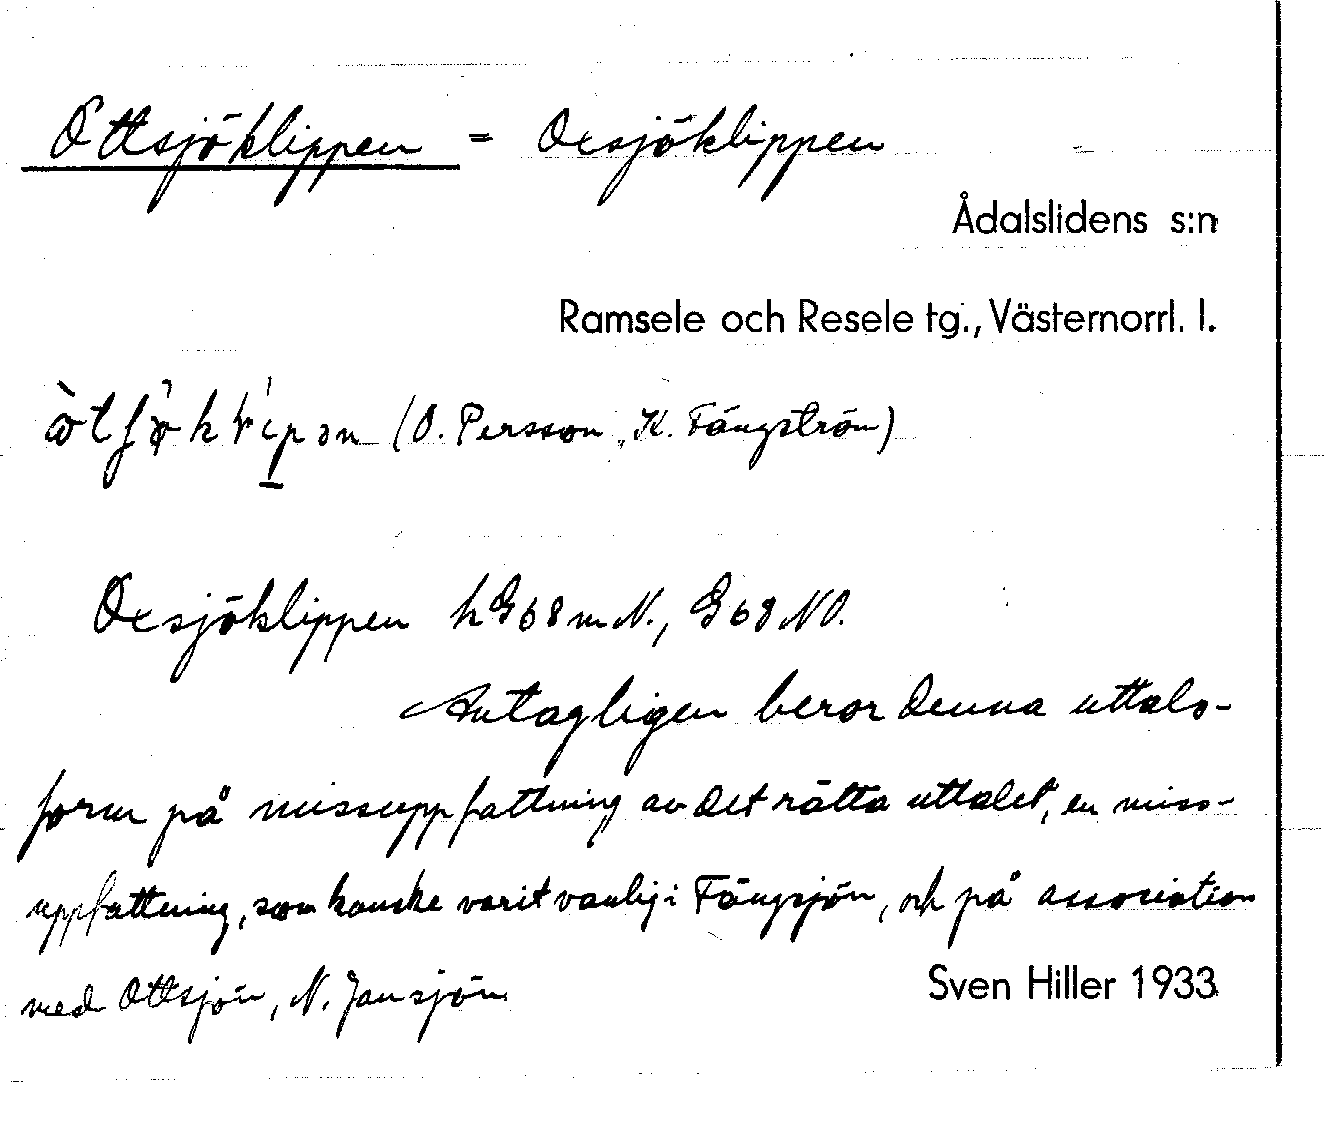 Ottsjöklippen = Oxsjöklippen
Ådalslidens s:n
Ramsele och Resele tg., Västernorrl. l.
(O. Persson, K. Fängström)
Oxsjöklippen h G68 m N., G68 NO.
Antagligen beror denna uttals-
form på missuppfattning av det rätta uttalet, en miss-
uppfattning, som kanske varit vanlig i Fängsjön, och på association
med Ottsjön, N. Jansjön
Sven Hiller 1933